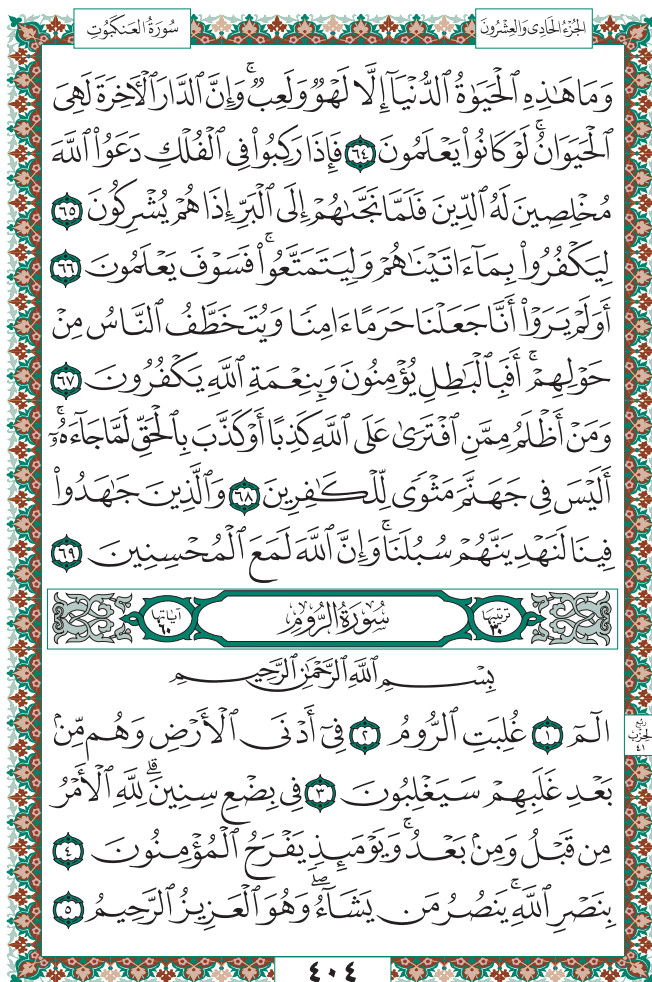 سُورَةُ العَنكَبُوتِ
الجُزْءُ الحَادِى وَالعِشْرُونَ
وَمَا هَٰذِهِ ٱلْحَيَوٰةُ ٱلدُّنْيَآ إِلَّا لَهْوٌ وَلَعِبٌ ۚ وَإِنَّ ٱلدَّارَ ٱلْءَاخِرَةَ لَهِىَ
ٱلْحَيَوَانُ ۚ لَوْ كَانُوا۟ يَعْلَمُونَ ٦٤ فَإِذَا رَكِبُوا۟ فِى ٱلْفُلْكِ دَعَوُا۟ ٱللَّهَ
مُخْلِصِينَ لَهُ ٱلدِّينَ فَلَمَّا نَجَّىٰهُمْ إِلَى ٱلْبَرِّ إِذَا هُمْ يُشْرِكُونَ ٦٥
لِيَكْفُرُوا۟ بِمَآ ءَاتَيْنَٰهُمْ وَلِيَتَمَتَّعُوا۟ ۚ فَسَوْفَ يَعْلَمُونَ ٦٦
أَوَلَمْ يَرَوْا۟ أَنَّا جَعَلْنَا حَرَمًا ءَامِنًا وَيُتَخَطَّفُ ٱلنَّاسُ مِنْ
حَوْلِهِمْ ۚ أَفَبِٱلْبَٰطِلِ يُؤْمِنُونَ وَبِنِعْمَةِ ٱللَّهِ يَكْفُرُونَ ٦٧
وَمَنْ أَظْلَمُ مِمَّنِ ٱفْتَرَىٰ عَلَى ٱللَّهِ كَذِبًا أَوْ كَذَّبَ بِٱلْحَقِّ لَمَّا جَآءَهُۥٓ ۚ
أَلَيْسَ فِى جَهَنَّمَ مَثْوًى لِّلْكَٰفِرِينَ ٦٨ وَٱلَّذِينَ جَٰهَدُوا۟
فِينَا لَنَهْدِيَنَّهُمْ سُبُلَنَا ۚ وَإِنَّ ٱللَّهَ لَمَعَ ٱلْمُحْسِنِينَ ٦٩
ترتيبها ٣٠ سُورَةُ الرُّومِ آياتها ٦٠
بِسْمِ ٱللَّهِ ٱلرَّحْمَٰنِ ٱلرَّحِيمِ
الٓمٓ ١ غُلِبَتِ ٱلرُّومُ ٢ فِىٓ أَدْنَى ٱلْأَرْضِ وَهُم مِّنۢ
ربع الحزب ٤١
بَعْدِ غَلَبِهِمْ سَيَغْلِبُونَ ٣ فِى بِضْعِ سِنِينَ ۗ لِلَّهِ ٱلْأَمْرُ
مِن قَبْلُ وَمِنۢ بَعْدُ ۚ وَيَوْمَئِذٍ يَفْرَحُ ٱلْمُؤْمِنُونَ ٤
بِنَصْرِ ٱللَّهِ ۚ يَنصُرُ مَن يَشَآءُ ۖ وَهُوَ ٱلْعَزِيزُ ٱلرَّحِيمُ ٥
٤٠٤